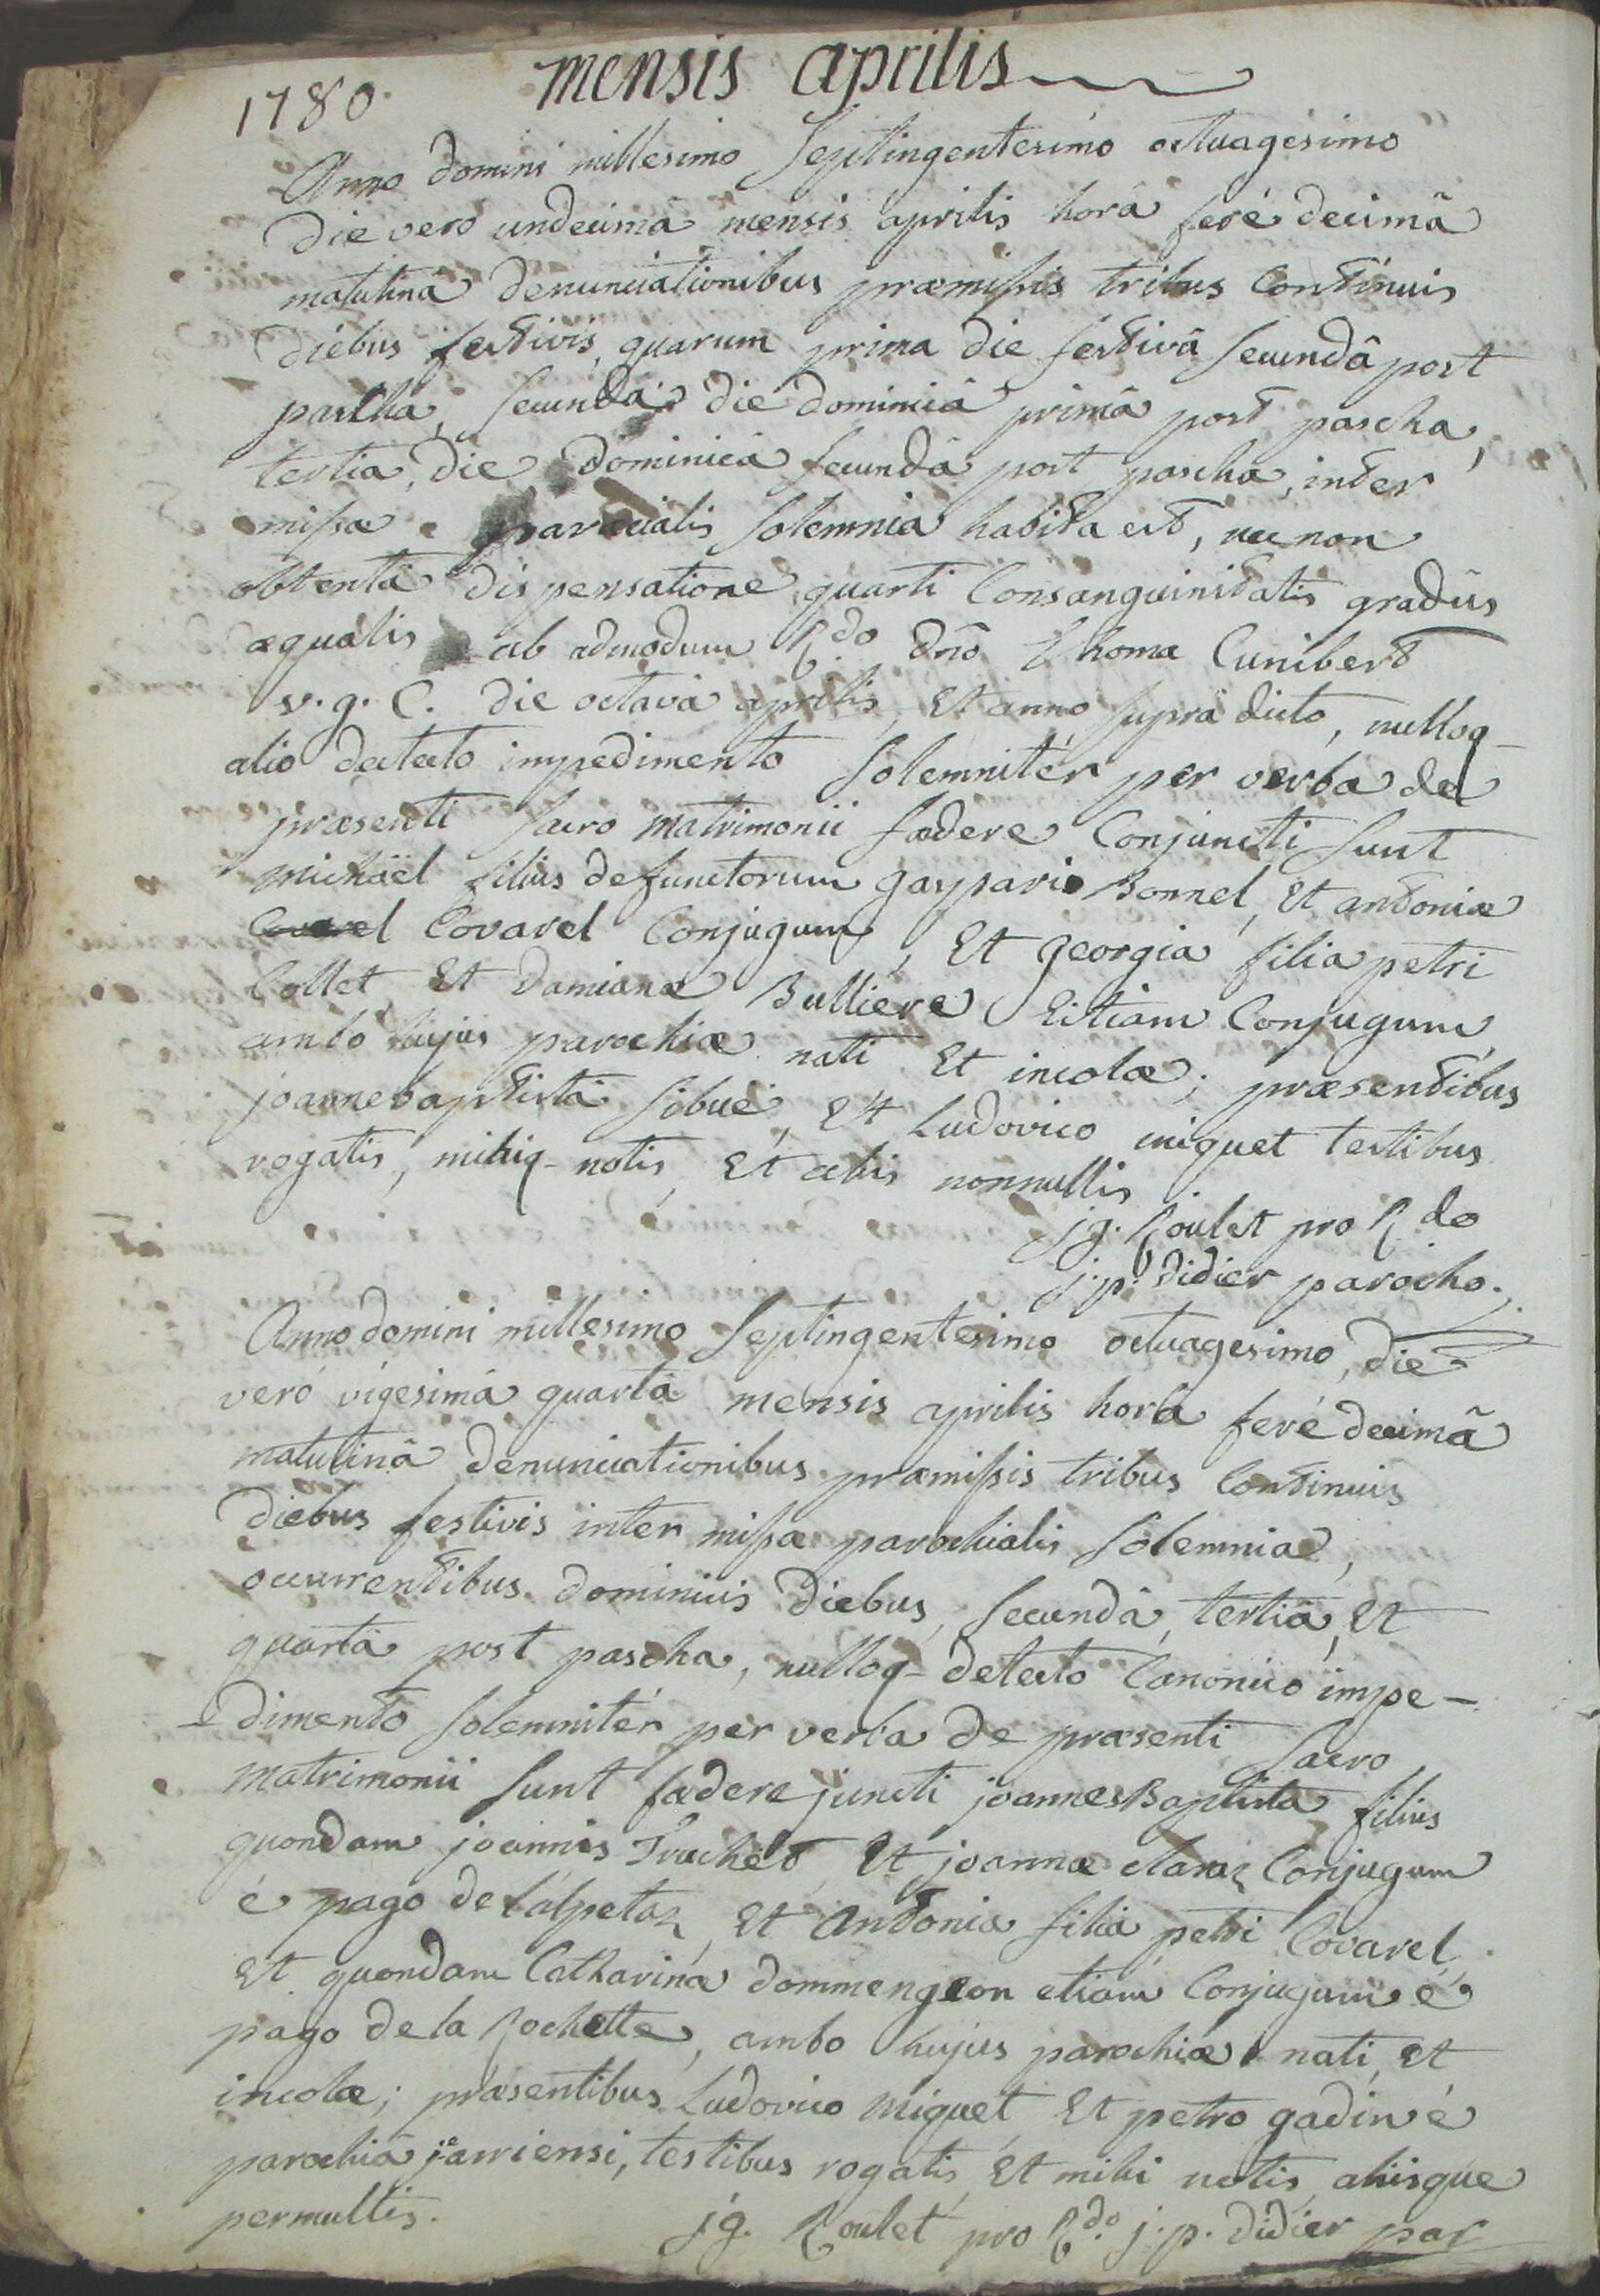 1780.
mensis aprilis
Anno domini millesimo septingentesimo octuagesimo
die vero undecimâ mensis aprilis horâ ferè decimâ
matutinâ denunciationibus præmissis tribus continuis
diebus festivis, quarum prima die festivâ secundâ post
pascha, secunda die dominicâ primâ post pascha,
tertia, die dominicâ secundâ post pascha, inter
missæ parocialis solemnia habita est, nec non
obtentâ dispensatione quarti consanguinitatis gradûs
æqualis ab admodum Rdo dno Thoma Cunibert
v. g. C. die octavâ aprilis, Et anno suprà dicto, nulloq-
alio detecto impedimento solemnitèr per verba de
præsenti sacro matrimonii fædere Conjuncti sunt
michaël filius defunctorum gaspari Bonnel, Et antoniæ
Covarel Covarel Conjugum, Et georgia filia petri
Collet, Et Damianæ Bulliere Etiam Conjugum
ambo hujus parochiæ nati Et incolæ; præsentibus
joannebaptistâ sibué, Et Ludovico miquet testibus
rogatis, mihiq- notis, Et aliis nonnullis
j g. Roulet pro R.do
j. p. didier parocho.
Anno domini millesimo septingentesimo octuagesimo, die
verò vigesimâ quartâ mensis aprilis horâ ferè decimâ
matutinâ denunciationibus præmissis tribus continuis
diebus festivis inter missæ parochialis solemnia,
occurrentibus dominicis diebus, secundâ, tertiâ, Et
quartâ post pascha, nulloq- detecto Canonico impe-
-dimento solemnitèr per verba de præsenti sacro
matrimonii sunt fædere juncti joannesBaptista filius
quondam joannis Truchet Et joannæ claraz Conjugum
é pago de l'alpetaz, Et Antonia filia petri Covarel,
Et quondam Catharina dommengeon etiam Conjugum é
pago de la Rochette, ambo hujus parochiæ nati, Et
incolæ; præsentibus Ludovico miquet, Et petro gadin é
parochiâ jarriensi, testibus rogatis, Et mihi notis, aliisque
permultis.
j g. Roulet pro R.do j. p. didier par